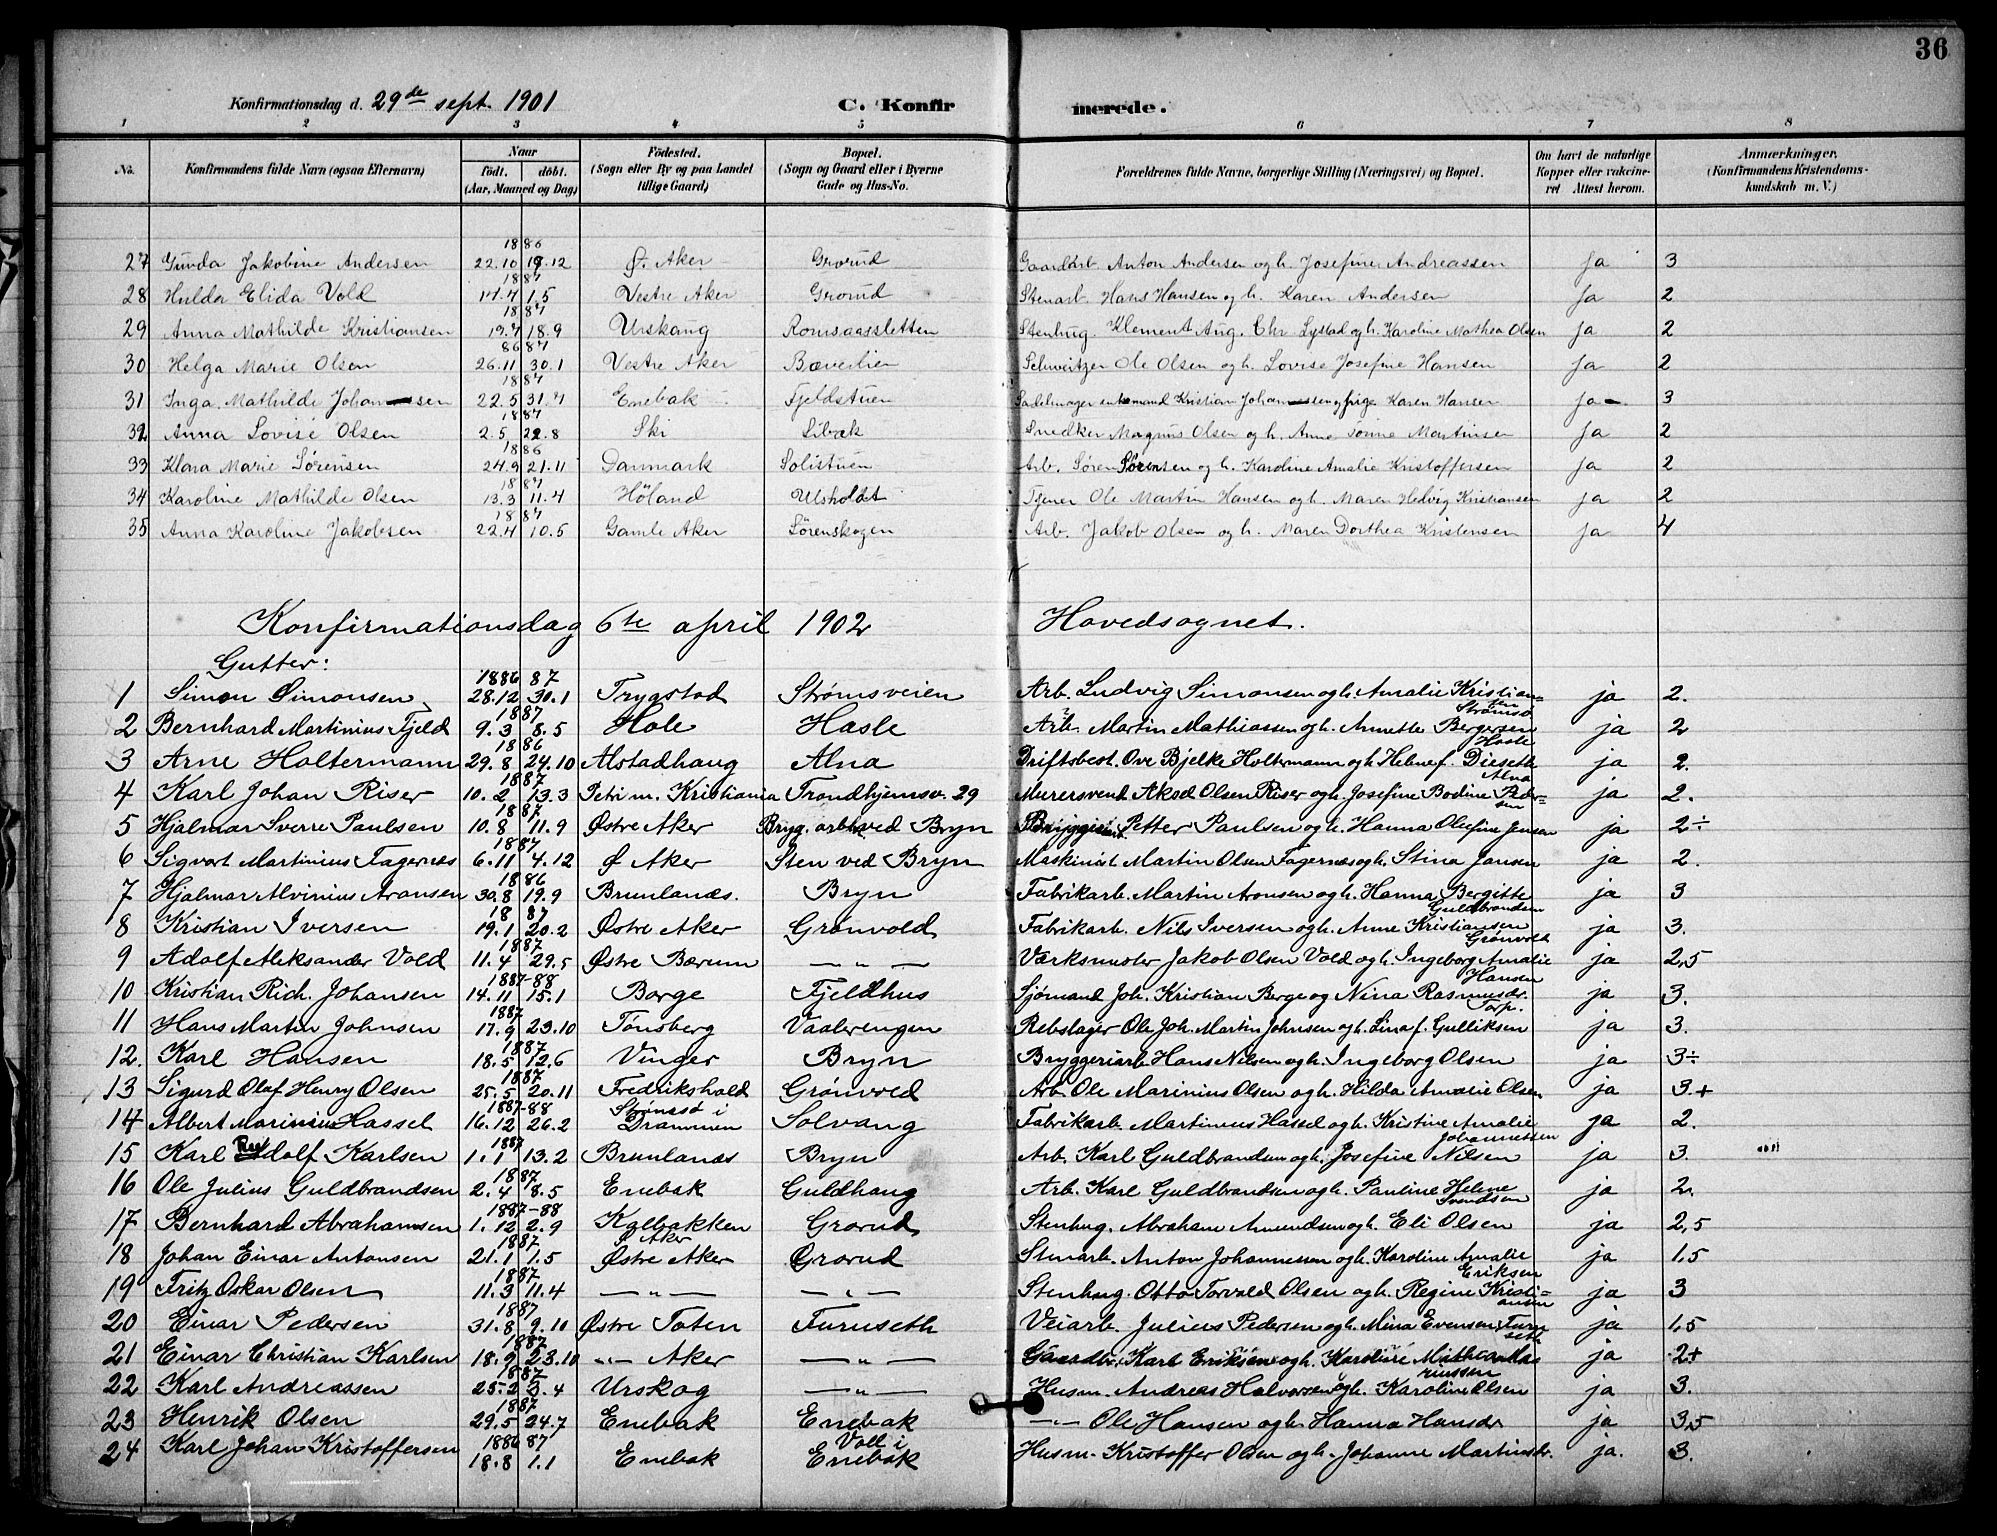 36
Konfirmationsdag d. 29de sept. 1901 C. Konfirmerede.
1 2 3 4 5 6 7 8
No. Konfirmandens fulde Navn (ogsaa Efternavn) Naar født. døbt. (Aar, Maaned og Dag) Fødested. (Sogn eller By og paa Landet tillige Gaard) Bopæl. (Sogn og Gaard eller i Byerne Gade og Hus-No. Forældrenes fulde Navne, borgerlige Stilling (Næringsvei) og Bopæl. Om havt de naturlige Kopper eller vakcineret Attest herom. Anmærkninger. (Konfirmandens Kristendomskundskab m. V.)
1886
27 Gunda Jakobine Andersen 22.10 19.12 Ø. Aker Grorud Gaardarb. Anton Andersen og h. Josefine Andreassen Ja 3
1887
28 Hulda Elida Vold 14.4 1.5 Vestre Aker Grorud Stenarb. Hans Hansen og h. Karen Andersen Ja 2
1887
29 Anna Mathilde Kristiansen 18.9 Urskaug Romsaassletten Stenhug. Klement Aug. Chr. Lystad og h. Karoline Mathea Olsen Ja 2
86 87
30 Helga Marie Olsen 26.11 30.1 Vestre Aker Bæverlien Schweitzer Ole Olsen og h. Lovise Josefine Hansen Ja 2
1887
31 Inga Mathilde Johansen 22.5 31.7 Enebak Fjeldstuen Sadelmager enkemand Kristian Johansen og pige Karen Hansen Ja 3
1887
32 Anna Lovise Olsen 2.5 22.8 Ski Libæk Snedker Magnus Olsen og h. Anne Martinsen Ja 2
1886
33 Klara Marie Sørensen 24.9 21.11 Danmark Solistuen Arb. Søren Sørensen og h. Karoline Amalie Kristoffersen Ja 2
1887
34 Karoline Mathilde Olsen 13.3 11.4 Höland Ulsholdt Tjener Ole Martin Hansen og h. Maren Hedvig Kristiansen Ja 2
1887
35 Anna Karoline Jakobsen 22.4 10.5 Gamle Aker Sørenskogen Arb. Jakob Olsen og h. Maren Dorthea Kristensen Ja 4
Konfirmationsdag 6te april 1902 Hovedsognet.
Gutter:
1886 87
1 Simon Simonsen 28.12 30.1 Trygstad Strømsveien Arb. Ludvig Simonsen og h. Amalie Kristiansen ja 2.
1887
2 Bernhard Martinius Fjeld 9.3 8.5 Hole Hasle Arb. Martin Mathiassen og h. Annette Bergersen Hasle ja 2
1886
3 Arne Holtermann 29.8 24.10 Alstadhaug Alna Driftsbest. Ove Bjelke Holtermann og h. Helene f. Dieseth Alna ja 2.
1887
4 Karl Johan Riser 10.2 13.3 Petri m. Kristiania Trondhjemsv. 29 Murersvend Aksel Olsen Riser og h. Josefine Bodine Pedersen ja 2.
1887
5 Hjalmar Sverre Paulsen 10.8 11.9 Østre Aker Bryg. arb. ved Bryn Petter Paulsen og h. Hanna Olefine Jensen ja 2÷
1887
6 Sigvart Martinius Fagernæs 6.11 4.12 Ø Aker Sten ved Bryn Maskinist Martin Olsen Fagernæs og h. Stina Jansen ja 2.
1886
7 Hjalmar Alvinius Aronsen 30.8 19.9 Brunlanæs. Bryn Fabrikarb. Martin Aronsen og h. Hanna Bergitte Guldbrandsen ja 3
18 87
8 Kristian Iversen 19.1 20.2 Østre Aker Grønvold Fabrikarb. Nils Iversen og h. Anne Kristiansen Grønvold ja 3.
1887
9 Adolf Aleksander Vold 11.4 29.5 Østre Bærum —"— Værksmester Jakob Olsen Vold og h. Ingeborg Amalie Hansen ja 2,5
1887-88
10 Kristian Rich. Johansen 14.11 15.1 Borge Fjeldhus Sjömand Joh. Kristian Berge og Nina Rasmusdr. Torp. ja 3.
1887
11 Hans Martin Johnsen 17.9 23.10 Tønsberg Vaalerengen Rebslager Ole Joh. Martin Johnsen og h. Lina f. Gulliksen ja 3.
1887
12. Karl Hansen 18.5 12.6 Vinger Bryn Bryggeriarb. Hans Nilsen og h. Ingeborg Olsen ja 3÷
1887
13 Sigurd Olaf Henry Olsen 25.5 20.11 Fredrikshald Grönvold Arb. Ole Marinius Olsen og h. Hilda Amalie Olsen ja 3+
1887-88
14 Albert Marinius Hassel 16.12 26.2 Strømsø i Drammen Solvang Fabrikarb. Martinius Hassel og h. Kristine Amalie Johannessen ja 2.
1887
15 Karl Adolf Karlsen 1.1 13.2 Brunlanæs Bryn Arb. Karl Guldbrandsen og h. Josefine Nilsen ja 3.
1887
16 Ole Julius Guldbrandsen 2.4 8.5 Enebak Guldhaug Arb. Karl Guldbrandsen og h. Pauline Helene Svendsen ja 2.
1887-88
17 Bernhard Abrahamsen 1.12 2.9 Kalbakken Ø Aker Grorud Stenhug. Abraham Amundsen og h. Eli Olsen ja 2,5
1887
18 Johan Einar Antonsen 21.1 1.5 Østre Aker Grorud Stenarb. Anton Johannesen og h. Karoline Amalie Eriksen ja 1,5
1887
19 Fritz Oskar Olsen 11.3 11.4 —"— —"— Stenhug. Otto Torvald Olsen og h. Regine Kristiansen ja 3
1887
20 Einar Pedersen 31.8 9.10 Østre Toten Furuseth Veiarb. Julius Pedersen og h. Mina Evensen Furuseth ja 1,5
1887
21 Einar Christian Karlsen 18.9 23.10 —"— Aker —"— Gaardbr. Karl Eriksen og h. Karoline Mathea ja 2+
1887
22 Karl Andreassen 25.2 3.4 Urskog —"— Husm. Andreas Halvorsen og h. Karoline Olsen ja 3.
1887
23 Henrik Olsen 29.5 24.7 Enebak Enebak —"— Ole Hansen og h. Hanna Hansdr ja 3,5
1886 87
24 Karl Johan Kristoffersen 18.8 1.1 Enebak Voll i Enebak Husm. Kristoffer Olsen og h. Johanne Martinsdr. ja. 3.